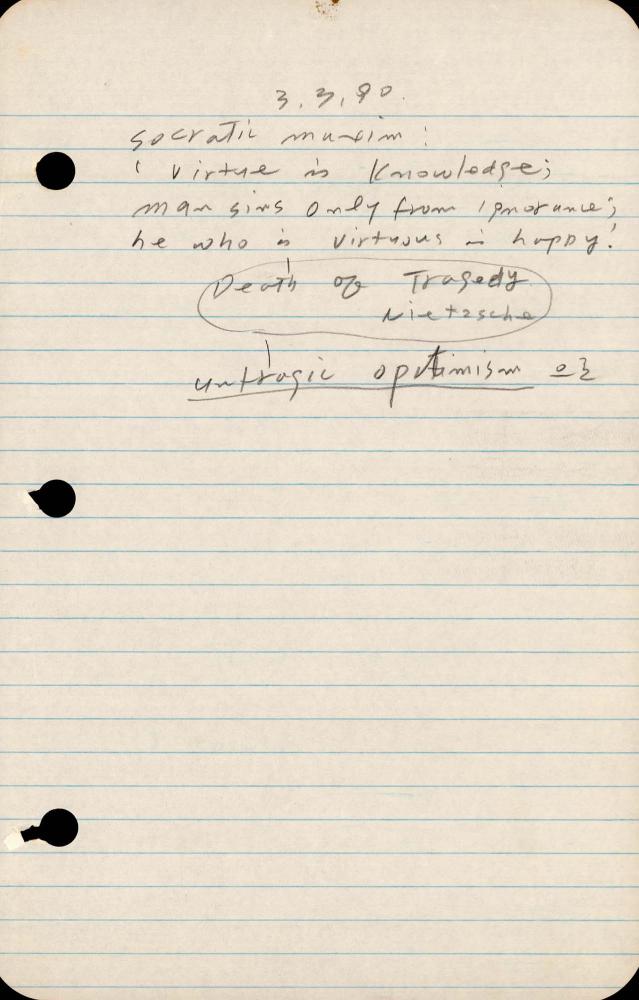 3.3,90.
Socratic maxim:
'virtue is Knowledge;
man sins only from ignorance;
he who is virtuous is happy.'
Death of Tragedy
Nietzsche
untragic optimism